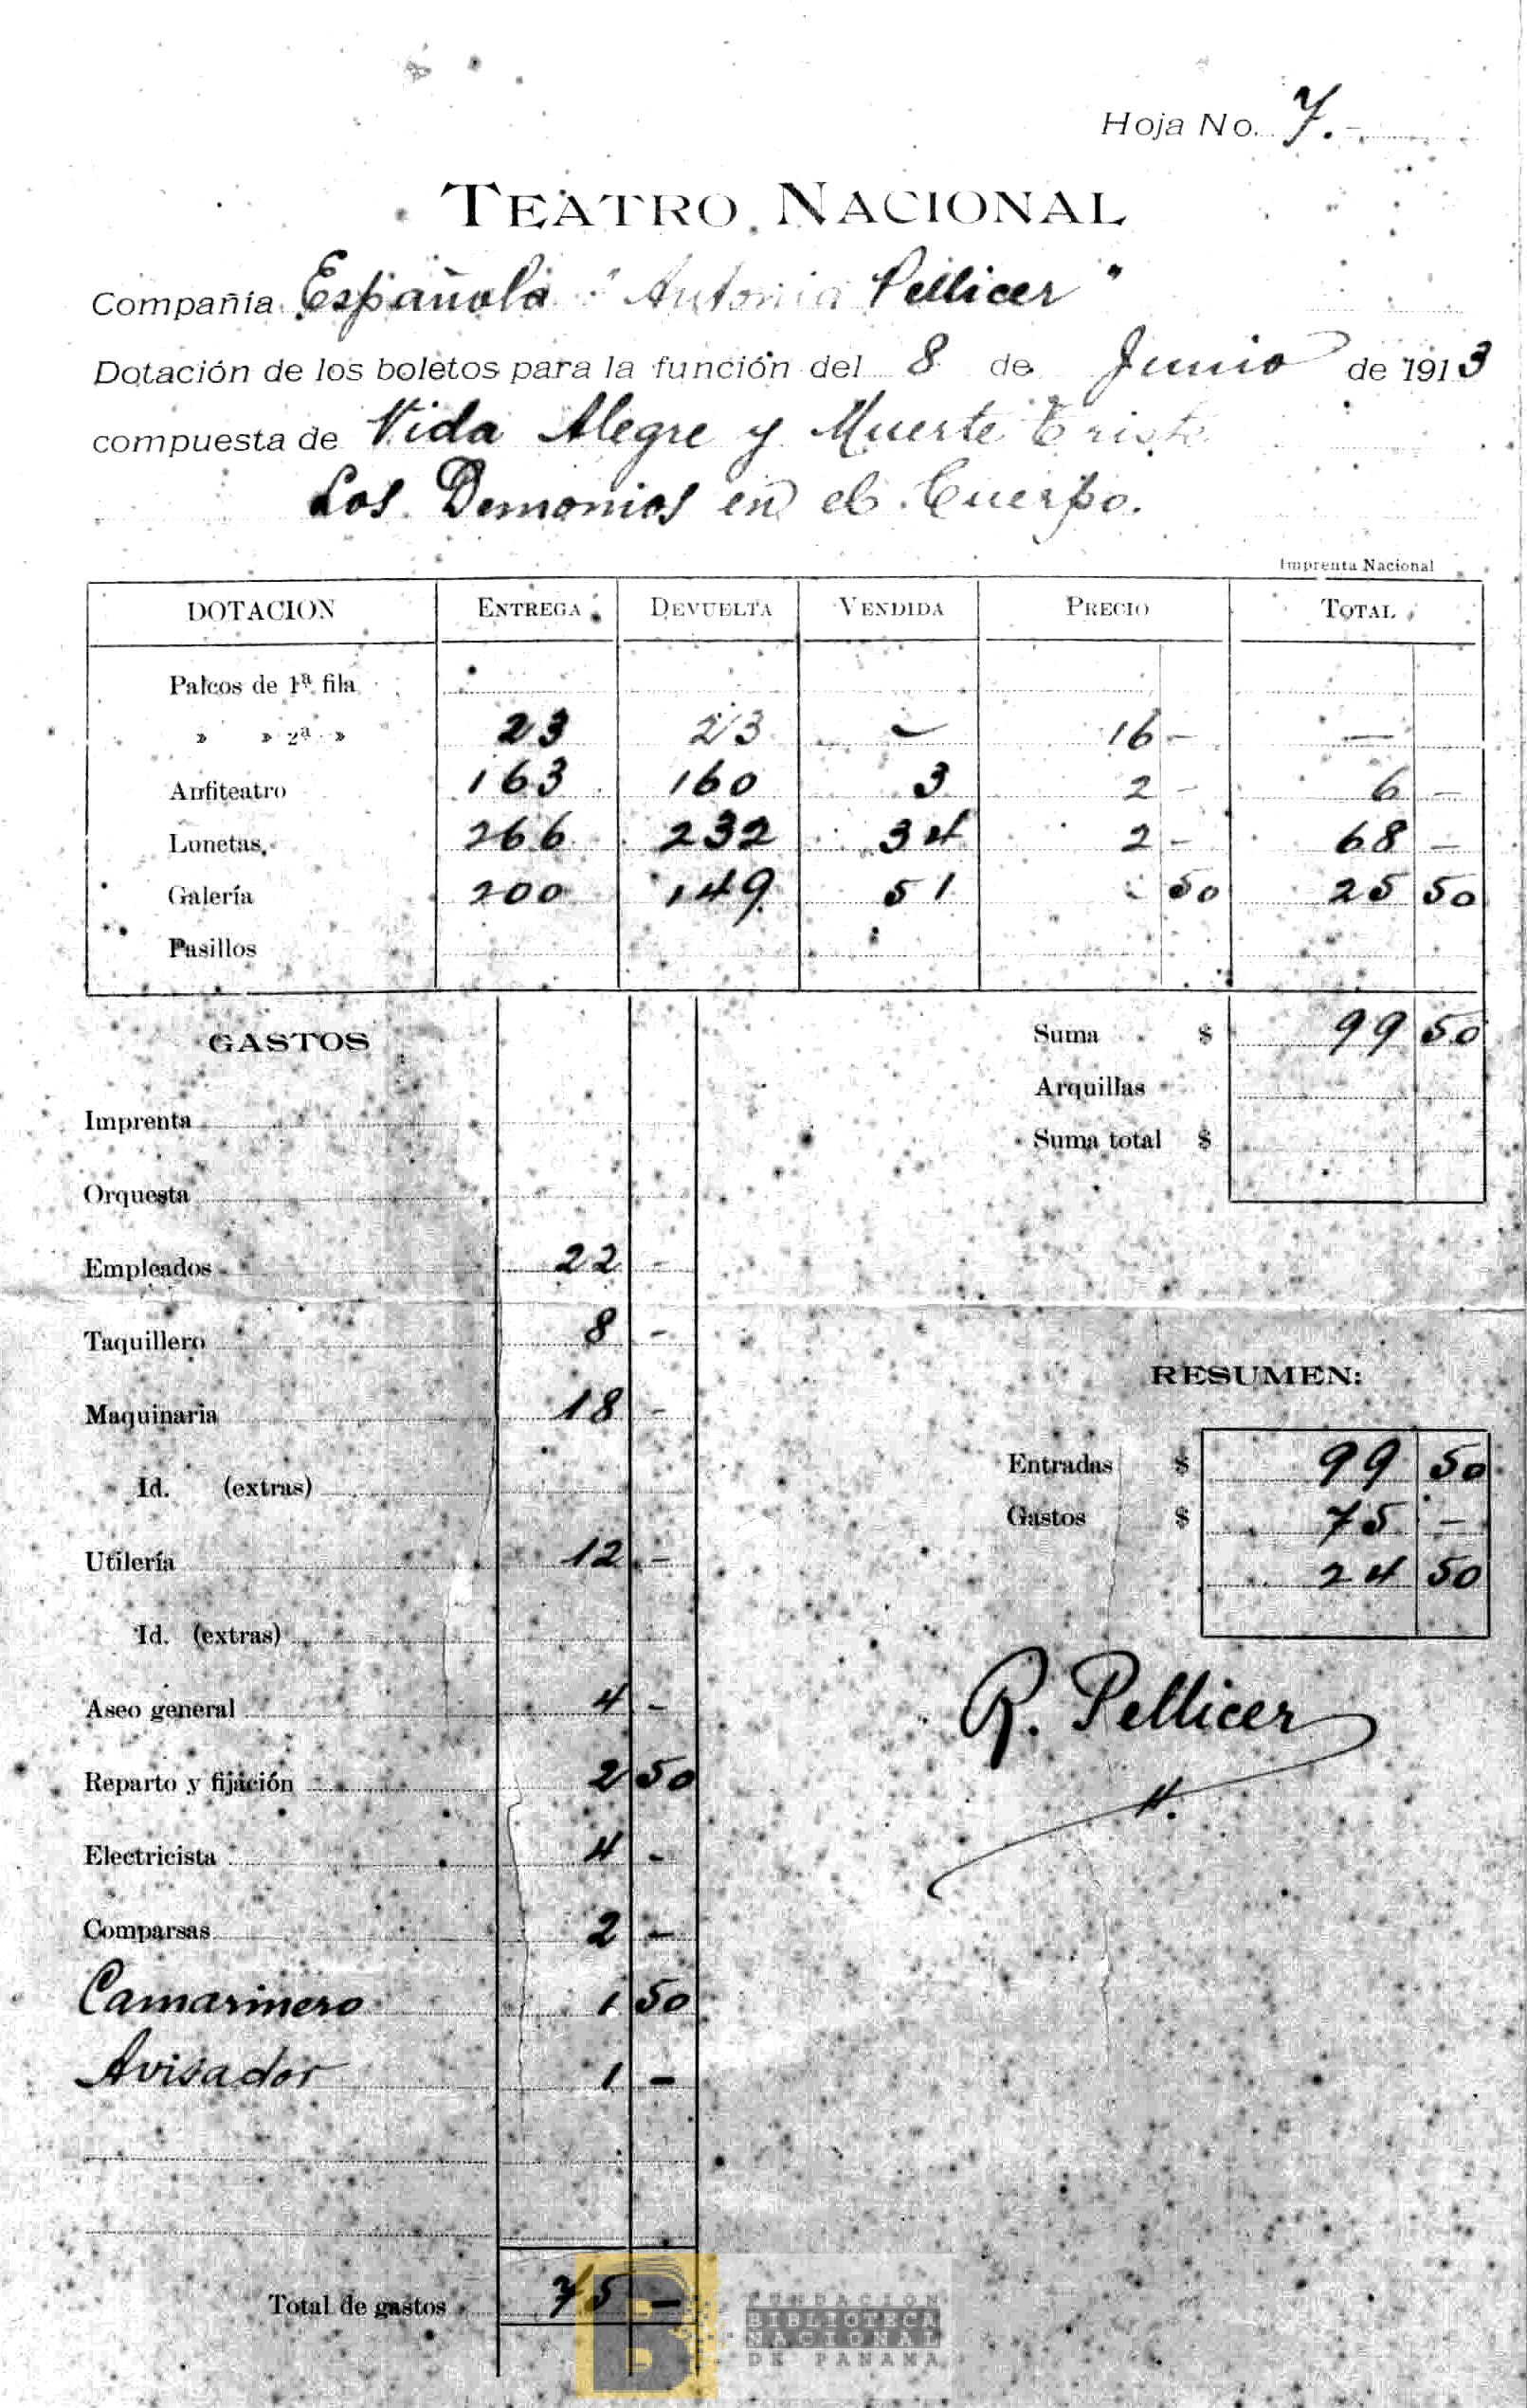 Hoja No. 7.-
TEATRO NACIONAL
Compañía Española "Antonia Pellicer"
Dotación de los boletos para la función del 8 de Junio de 1913
compuesta de Vida Alegre y Muerte Triste
Los Demonios en el Cuerpo.
Imprenta Nacional
DOTACION ENTREGA DEVUELTA VENDIDA PRECIO TOTAL
Palcos de 1ª fila
» » 2ª » 23 23 — 16 - —
Anfiteatro 163 160 3 2 - 6 —
Lunetas, 266 232 34 2 - 68 —
Galería 200 149 51 50 25 50
Pasillos
GASTOS
Suma $ 99 50
Arquillas
Suma total $
Imprenta
Orquesta
Empleados 22 -
Taquillero 8 -
Maquinaria 18 -
Id. (extras)
Utilería 12 -
Id. (extras)
Aseo general 4 -
Reparto y fijación 2 50
Electricista 4 -
Comparsas 2 -
Camarinero 1 50
Avisador 1 -
Total de gastos 75 -
RESUMEN:
Entradas $ 99 50
Gastos $ 75 -
24 50
R. Pellicer
B
FUNDACION
BIBLIOTECA
NACIONAL
DE PANAMA